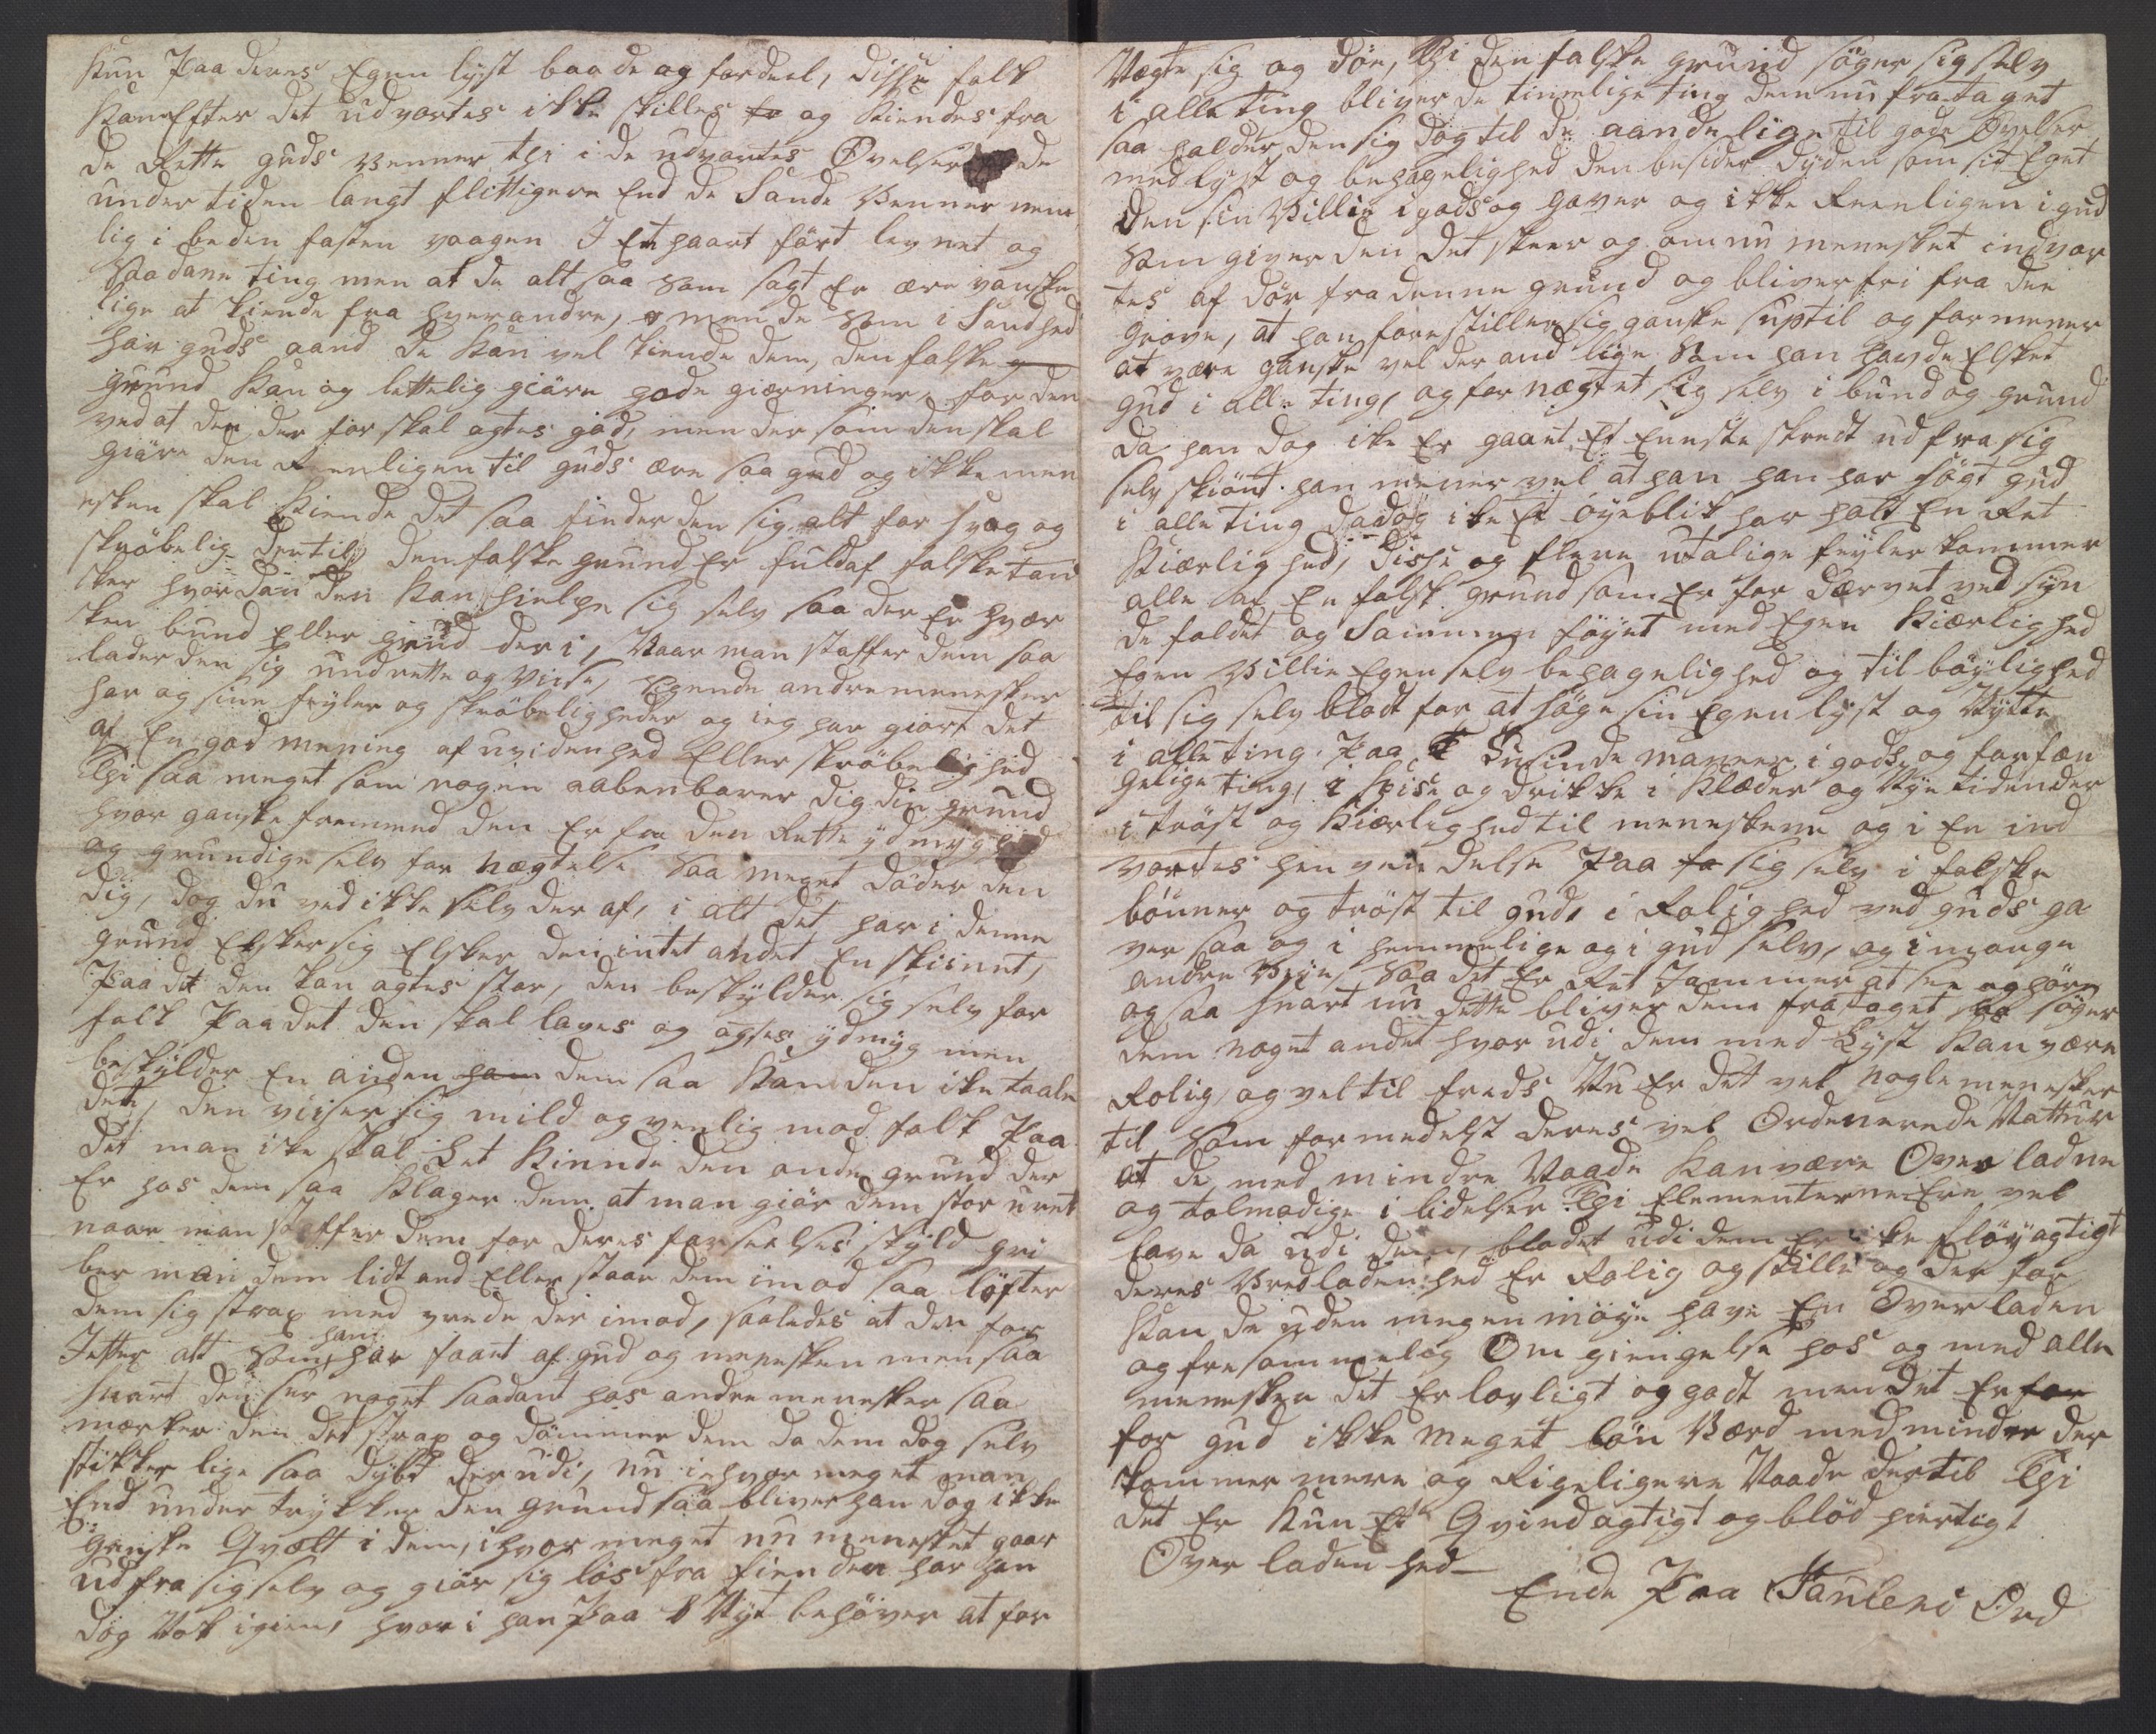 kun Paa deres Egen lÿst baade og fordeel, disse folk
kan Efter det udvortes ikke skilles fr og kiendes fra
de Rette guds venner thi i de udvortes Øvelser de
undertiden langt flittigere End de Sande venner nem
lig i beden fasten vaagen I Et haart ført levnet og
saadane ting men at de alt saa som sagt Er ære vanske
lige at kiende fra hverandre, men de som i Sandhed
har guds aand de kan vel kiende dem, den falske g
grund kan og lettelig giøre gode giærninger, for den
ved at den der for skal agtes god, men der som den skal
giøre den Reenligen til guds ære saa gud og ikke men
esken skal kiende det saa finder den sig alt for svag og
skrøbelig dertil, den falske grund Er fuld af falske tan
ker hvordan den kan hielpe sig selv saa der Er hver
ken bund Eller grund der i, Naar man straffer dem saa
lader den sig undrette og viise, Egende andre menesker
har og sine feÿler og skrøbeligheder og ieg har giort det
af En god mening af uvidenhed Eller skrøbelighed
Thi saa meget som nogen aabenbarer dig din grund
hvor ganske fremmed den Er fra den Rette ÿdmÿghed
og grundige selv for nægtelse saa meget døder den
dig, dog du ved ikke selv der af, i alt det har i denne
grund Elsker sig Elsker den intet andet En skinnet,
Paa det den kan agtes stor, den beskÿlder sig selv for
folk Paa det den skal loves og agtes ÿdmÿg men
beskÿlder En anden ham dem saa kan den ike taale
det, den viiser sig mild og venlig mod folk Paa
det man ike skal Let kiende den onde grund der
Er hos dem saa klager dem at man giør dem stor uret
naar man straffer dem for deres forseelses skÿld gri
ber man dem lidt and Eller staar dem imod saa løfter
dem sig strax med vrede der imod, saaledes at den for
Jetter alt som han har faaet af gud og menesken men saa
snart den ser noget saadant hos andre menesker saa
mærker den det strax og dømmer dem da dem dog selv
stikker lige saa dÿbt der udi, nu i hvor meget man
End under trÿkker den grund saa bliver han dog ikke
ganske Qvalt i dem, i hvor meget nu mennesket gaar
ud fra sig selv og giør sig løs fra fienden har han
dog Nok igien, hvor i han Paa Nÿt behøver at for
Nægte sig og døe, Thi den falske grund søger sig selv
i alle ting bliver de timelige ting dem nu fra taget
saa holder den sig dog til de aandelige til gode Øvelser
med lÿst og behagelighed den besider dÿden som sit Eget
den sin Villie i gods og gaver og ikke Reenligen i gud
som giver den det skeer og om nu menesket indvor
tes af dør fra denne grund og bliver fri fra den
grove, at han forestiller sig ganske suptil og formener
at være ganske vel der and lige som han havde Elsket
gud i alle ting, og for nægtet sig selv i bund og grund
da han dog ike Er gaaet Et Eeneste skredt ud fra sig
selv skiønt han mener vel at han han har søgt gud
i alle ting da dog ike Et øÿeblik har hatt En Ret
kiærlighed, disse og flere utalige feÿler kommer
alle af En falsk grund som Er for dærvet ved sÿn
de faldet og Sammen føÿet med Egen kiærlighed
Egen Villie Egen selv behagelighed og til bøÿlighed
til sig selv blodt for at søge sin Egen lÿst og Nÿtte
i alle ting. Paa tusinde maneer i gods og forfæn
gelige ting, i spise og drikke i klæder og Nÿe tidender
i trøst og kiærlighed til meneskene og i En ind
vortes henvendelse Paa fo sig selv i falske
bønner og trøst til gud, i Rolighed ved guds ga
ver saa og i hemmelige og i gud selv, og i mange
andre Veÿe, saa det Er Ret Jammer at see og høre
og saa snart nu dette bliver dem frataget saa søger
dem noget andet hvor udi dem med Lÿst kan være
Rolig, og vel til freds Nu Er det vel nogle menesker
til som formedelst deres vel Ordenerede Nattur
at de med mindre Naade kan være Overladne
og tolmodige i lidelser Thi Elementerne Ere vel
lave da udi dem, blodet udi dem Er ike fløÿagtigt
deres Vredladenhed Er Rolig og stille og der for
kan de uden megen møÿe have En Overladen
og fresommelog Omgiengelse hos og med alle
menesken det Er lovligt og godt men det Er for
for gud ikke meget løn Værd med minder der
kommer mere og Rigeligere Naade dertil Thi
det Er kun Et Qvindagtigt og blød hiertigt
Over ladenhed –
Ende Paa Tauleri Ord